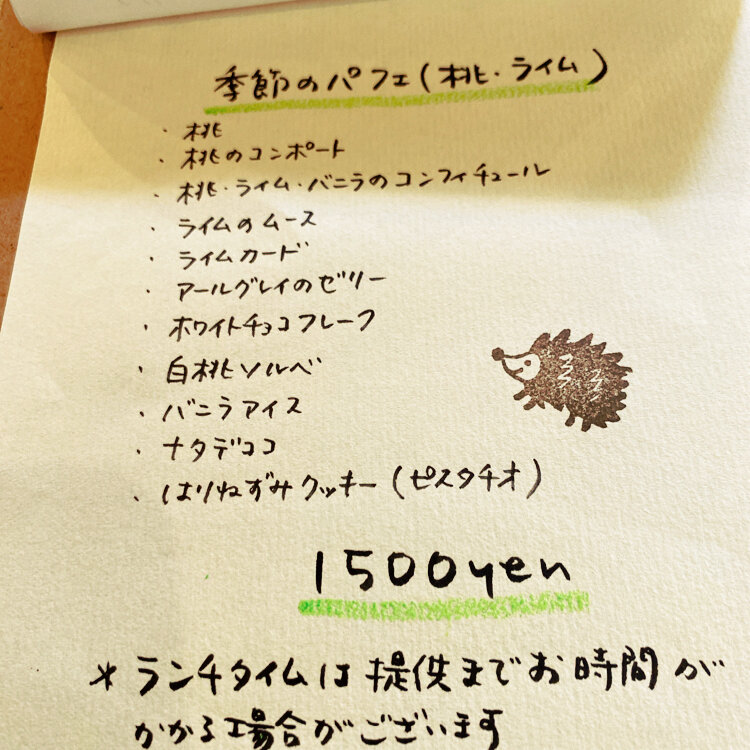 季節のパフェ(桃・ライム)
・桃
・桃のコンポート
・桃・ライム・バニラのコンフィチュール
・ライムのムース
・ライムカード
・アールグレイのゼリー
・ホワイトチョコフレーク
・白桃ソルベ
・バニラアイス
・ナタデココ
・はりねずみクッキー(ピスタチオ)
1500yen
*ランチタイムは提供までお時間が
かかる場合がございます